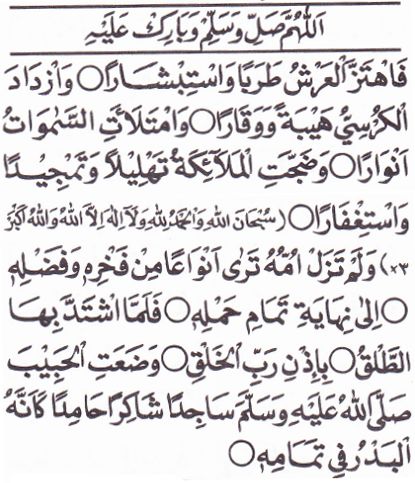 اَللّٰهُمَّ صَلِّ وَسَلِّمْ وَبَارِكْ عَلَيْهِ
فَاهْتَزَّ الْعَرْشُ طَرَبًا وَاسْتِبْشَارًا ○ وَازْدَادَ
الْكُرْسِيُّ هَيْبَةً وَوَقَارًا ○ وَامْتَلَأَتِ السَّمٰوَاتُ
اَنْوَارًا ○ وَضَجَّتِ الْمَلَآئِكَةُ تَهْلِيْلًا وَتَمْجِيْدًا
وَاسْتِغْفَارًا ○ (سُبْحَانَ اللهِ وَالْحَمْدُ لِلّٰهِ وَلَا اِلٰهَ اِلَّا اللهُ وَاللهُ اَكْبَرُ
×٣) وَلَمْ تَزَلْ اُمُّهُ تَرٰى اَنْوَاعًا مِنْ فَخْرِهٖ وَفَضْلِهٖ
○ اِلٰى نِهَايَةِ تَمَامِ حَمْلِهٖ ○ فَلَمَّا اشْتَدَّ بِهَا
الطَّلْقُ ○ بِاِذْنِ رَبِّ الْخَلْقِ ○ وَضَعَتِ الْحَبِيْبَ
صَلَّى اللهُ عَلَيْهِ وَسَلَّمَ سَاجِدًا شَاكِرًا حَامِدًا كَاَنَّهُ
الْبَدْرُ فِيْ تَمَامِهٖ ○